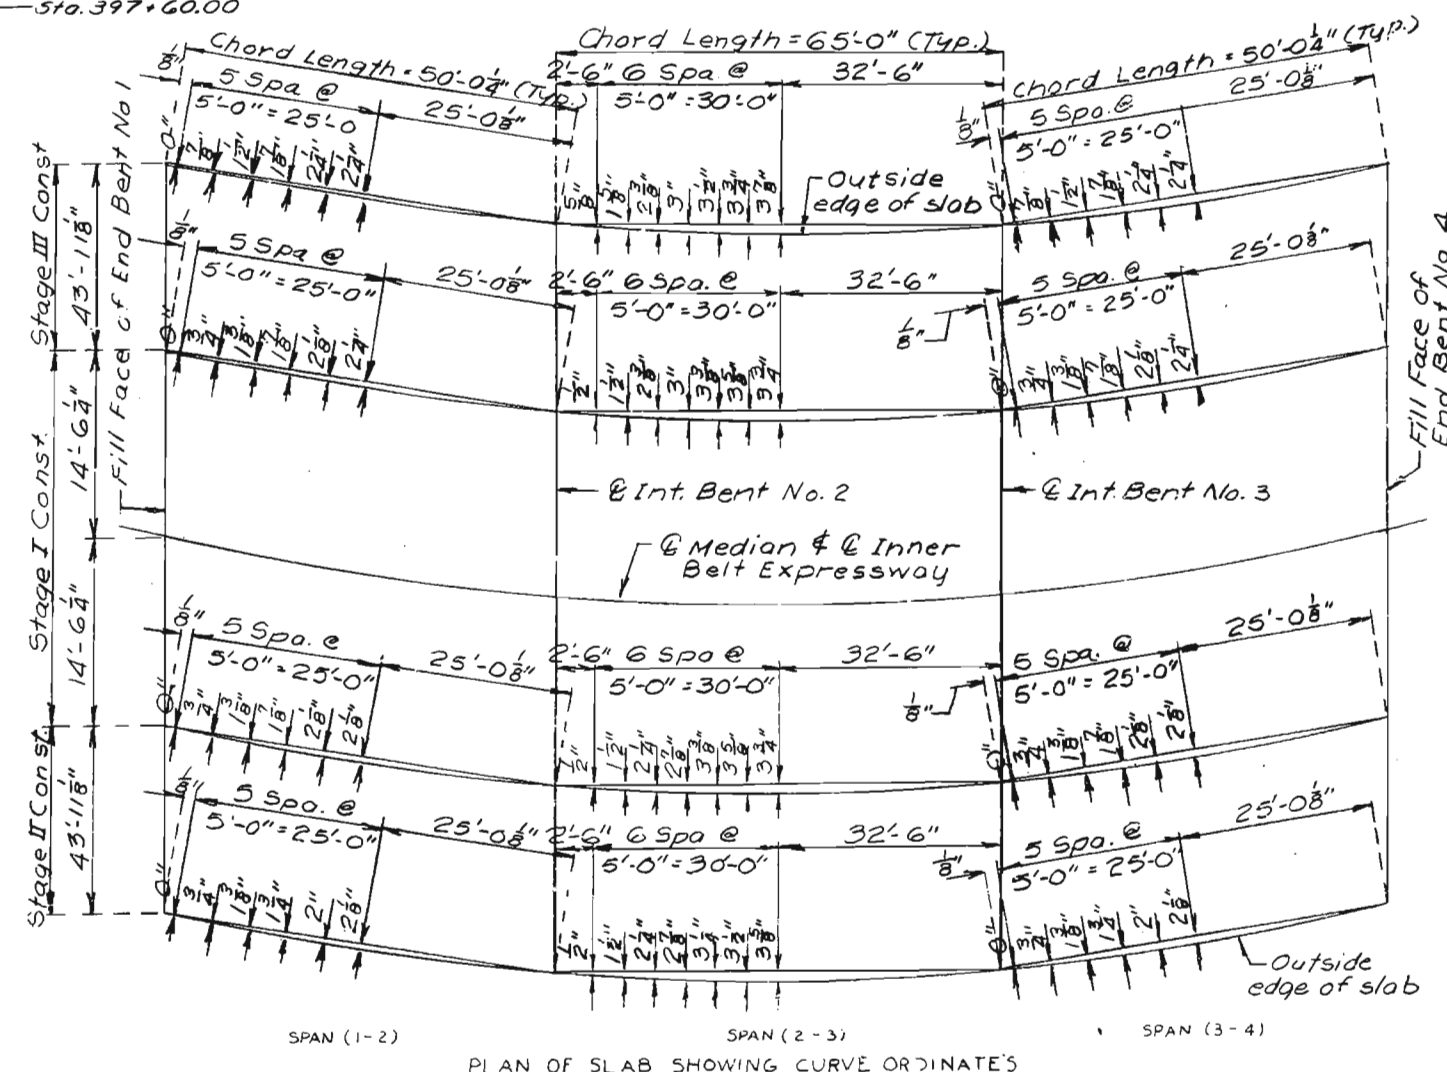 Sta. 397+60.00
Chord Length = 50'-0¼" (Typ.)
Chord Length = 65'-0" (Typ.)
Chord Length = 50'-0¼" (Typ.)
⅛"
5 Spa @
5'-0" = 25'-0
25'-0⅛"
2'-6"
6 Spa @
5'-0" = 30'-0"
32'-6"
⅛"
5 Spa. @
5'-0" = 25'-0"
25'-0⅛"
0" ⅞" 1½" 1⅞" 2¼" 2¼"
⅝" 1⅝" 2⅜" 3" 3½" 3¾" 3⅞"
0" ⅞" 1½" 1⅞" 2¼" 2¼"
Outside
edge of slab
Stage III Const
43'-11⅛"
Fill Face of End Bent No 1
⅛"
5 Spa @
5'-0" = 25'-0"
25'-0⅛"
2'-6"
6 Spa. @
5'-0" = 30'-0"
32'-6"
⅛"
5 Spa. @
5'-0" = 25'-0"
25'-0⅛"
0" ¾" 1⅜" 1⅞" 2⅛" 2¼"
½" 1½" 2⅜" 3" 3⅜" 3⅝" 3¾"
0" ¾" 1⅜" 1⅞" 2⅛" 2¼"
Fill Face of
End Bent No. 4
Stage I Const.
14'-6¼"
14'-6¼"
℄ Int. Bent No. 2
℄ Int. Bent No. 3
℄ Median & ℄ Inner
Belt Expressway
⅛"
5 Spa. @
5'-0" = 25'-0"
25'-0⅛"
2'-6"
6 Spa @
5'-0" = 30'-0"
32'-6"
⅛"
5 Spa. @
5'-0" = 25'-0"
25'-0⅛"
0" ¾" 1⅜" 1⅞" 2⅛" 2⅛"
½" 1½" 2¼" 2⅞" 3⅜" 3⅝" 3¾"
0" ¾" 1⅜" 1⅞" 2⅛" 2⅛"
Stage II Const.
43'-11⅛"
⅛"
5 Spa. @
5'-0" = 25'-0"
25'-0⅛"
2'-6"
6 Spa @
5'-0" = 30'-0"
32'-6"
⅛"
5 Spa. @
5'-0" = 25'-0"
25'-0⅛"
0" ¾" 1⅜" 1¾" 2" 2⅛"
½" 1½" 2¼" 2⅞" 3¼" 3½" 3⅝"
0" ¾" 1⅜" 1¾" 2" 2⅛"
Outside
edge of slab
SPAN (1-2)
SPAN (2-3)
SPAN (3-4)
PLAN OF SLAB SHOWING CURVE ORDINATE'S